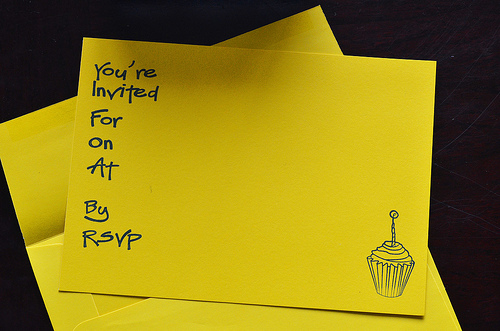 You're
Invited
For
On
At
By
RSVP